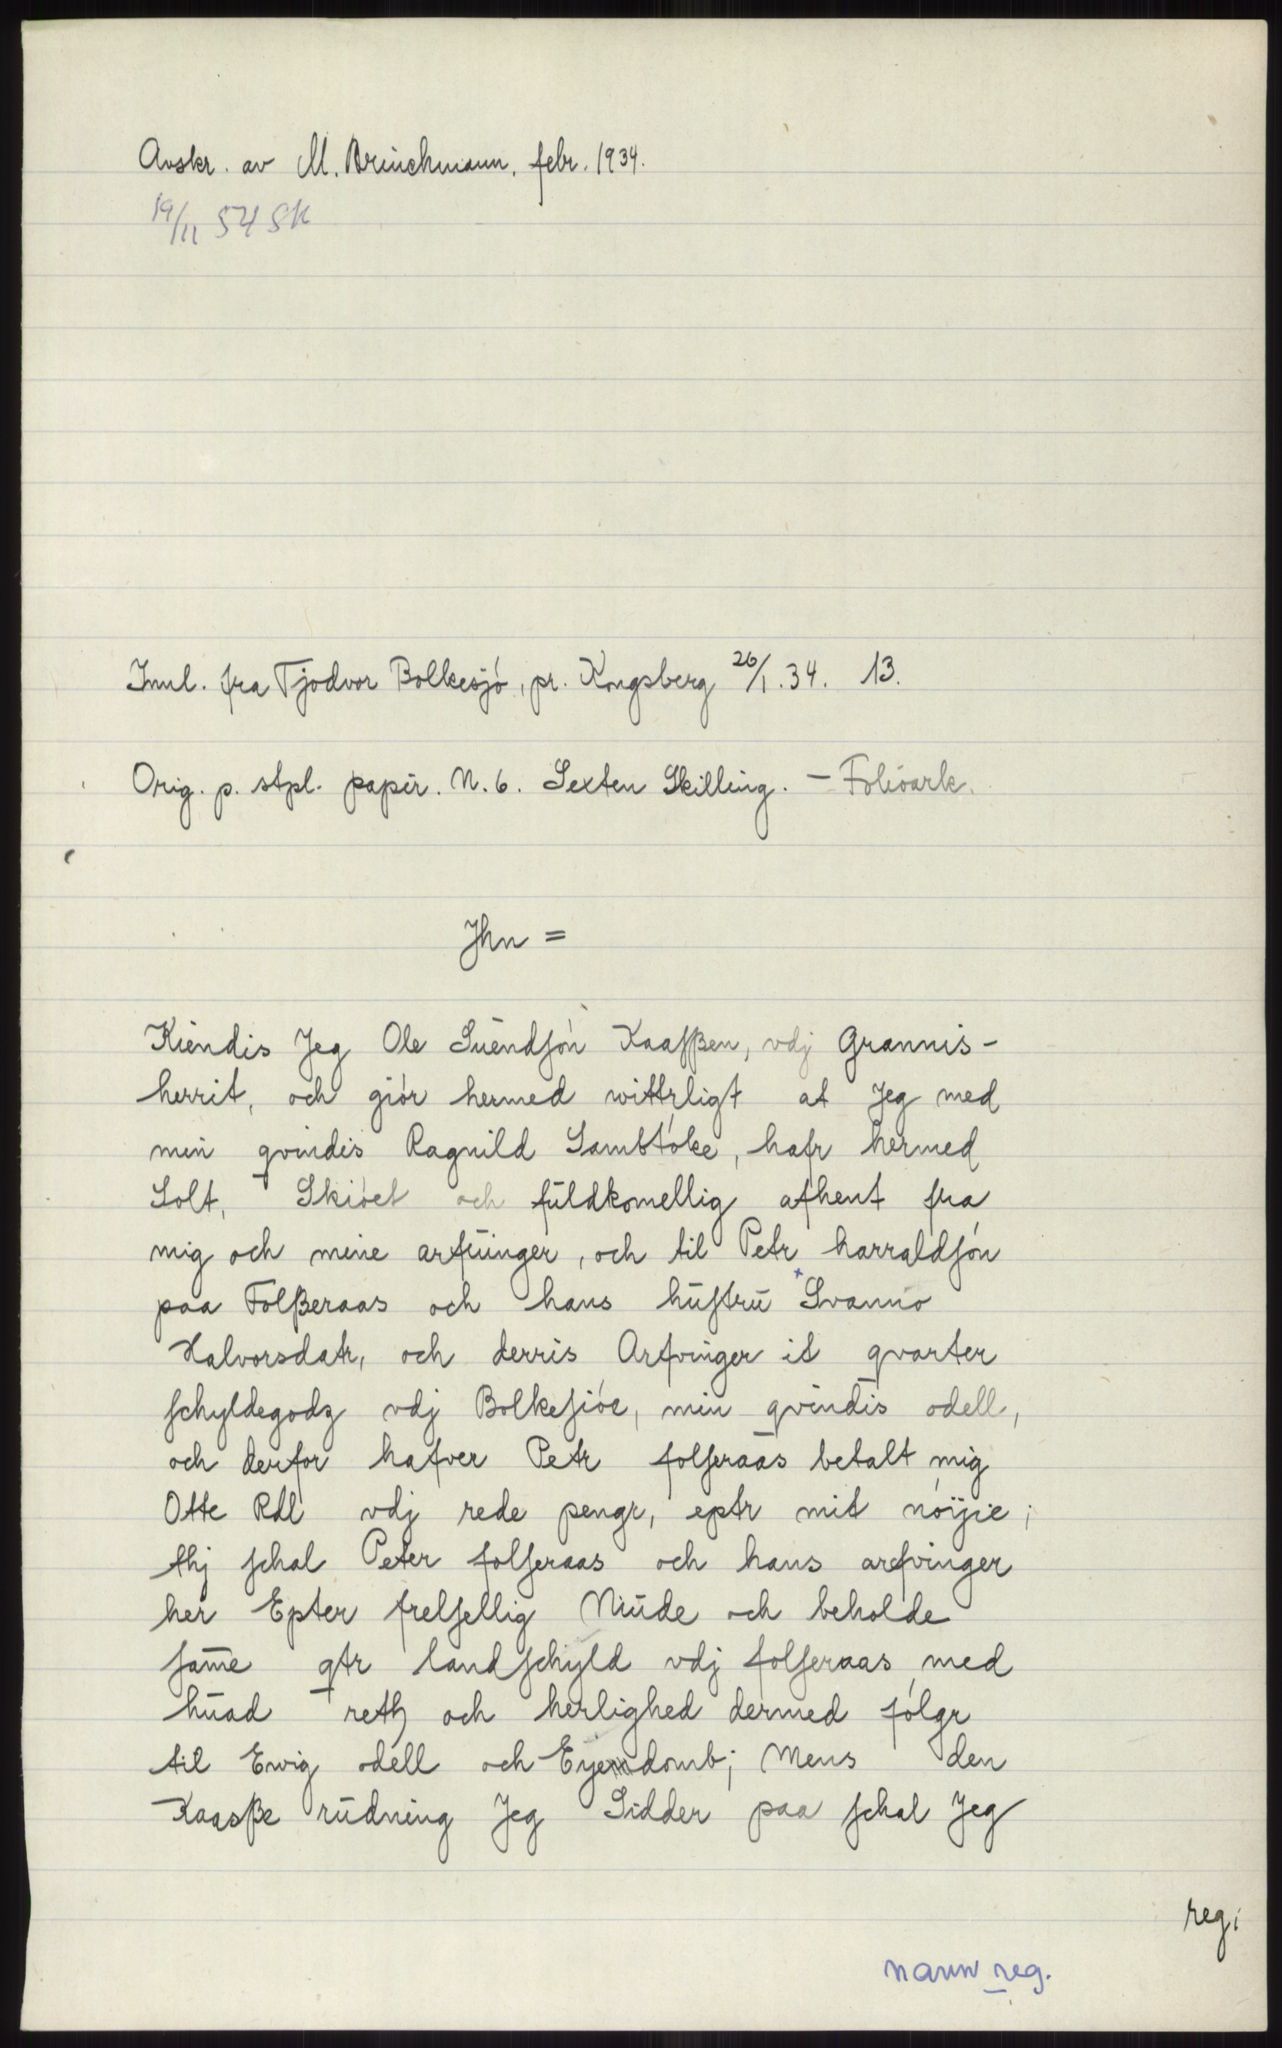 Avskr. av M. Brinchmann, febr. 1934.
19/11 54 SK
Innl. fra Tjodvor Bolkesjó, pr. Kongsberg 26/1.34. 13.
Orig. p. stpl. papir. N. 6. Sexten Skilling. – Folioark.
Jhn =
Kiendis Jeg Ole Suendsón Kaassßen, vdj Grannis-
herrit, och giór hermed wittrligt at Jeg med
min qvindis Ragnild Sambtóke, hafr hermed
Solt, Skióet och fuldkomellig afhent fra
mig och mine arfuinger, och til Petr harraldsón
paa Folßeraas och hans hustru Svanno
Halvorsdatr, och derris Arfvinger it qvarter
schyldegodz vdj Bolkesióe, min qvindis odell,
och derfor hafver Petr folseraas betalt mig
Otte Rdl vdj rede pengr, eptr mit nóÿie;
thj schal Peter folseraas och hans arfvinger
her Epter frelsellig Niude och beholde
same qtr landschyld vdj folseraas med
huad reth och herlighed dermed fólgr
til Ewig odell och Eyendomb; Mens den
Kaasße rudning Jeg Sidder paa schal Jeg
reg.
navn reg.